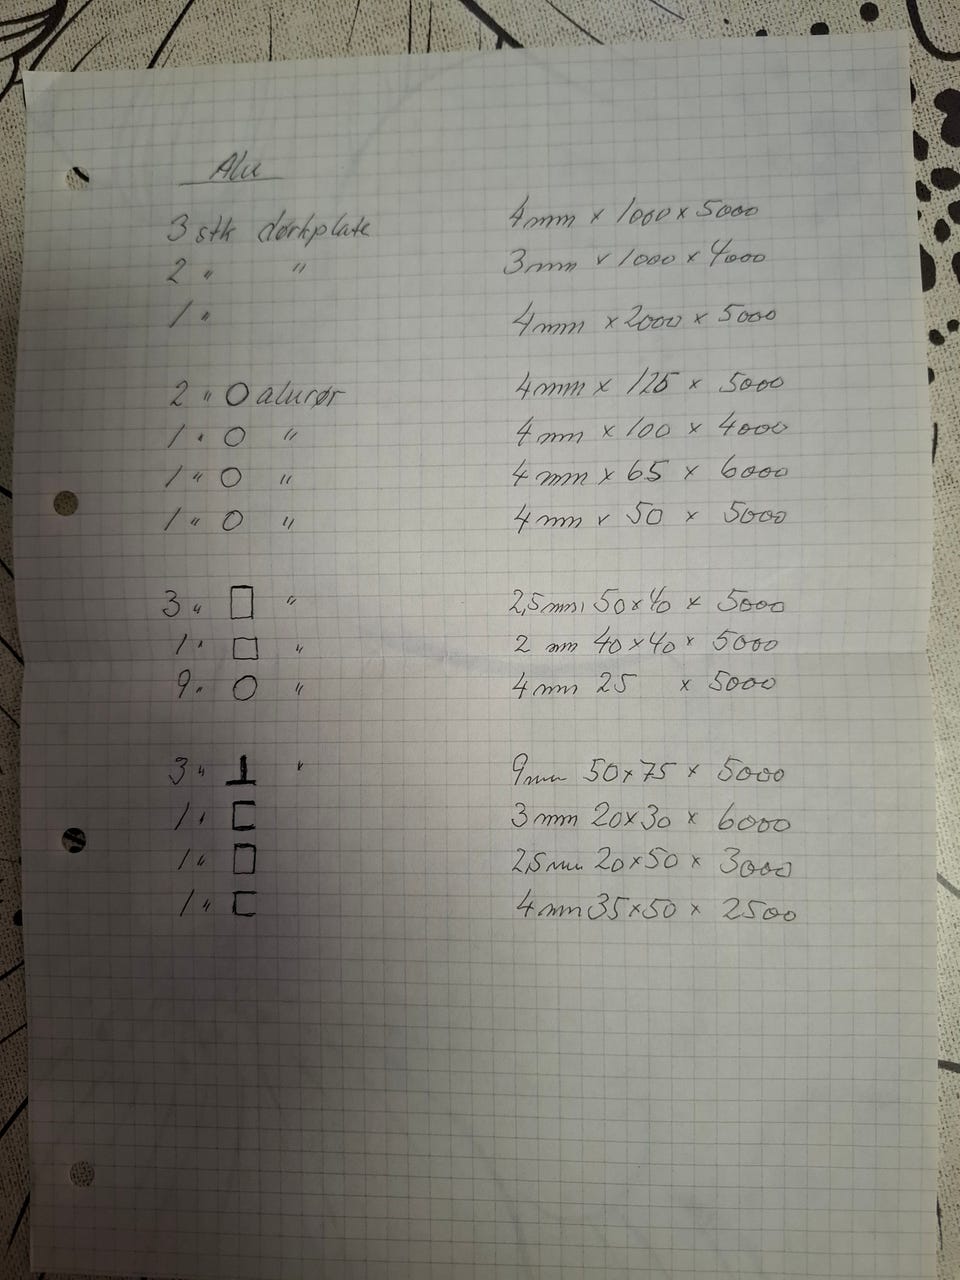 Alu
3 stk dørkplate 4mm x 1000 x 5000
2 " " 3mm x 1000 x 4000
1 " 4mm x 2000 x 5000
2 " O alurør 4mm x 125 x 5000
1 " O " 4mm x 100 x 4000
1 " O " 4mm x 65 x 6000
1 " O " 4mm x 50 x 5000
3 " □ " 2,5mm, 50x40 x 5000
1 " □ " 2 mm 40x40 x 5000
9 " O " 4mm 25 x 5000
3 " ⊥ " 9mm 50x75 x 5000
1 " ⊏ 3mm 20x30 x 6000
1 " □ 2,5mm 20x50 x 3000
1 " ⊏ 4mm 35x50 x 2500